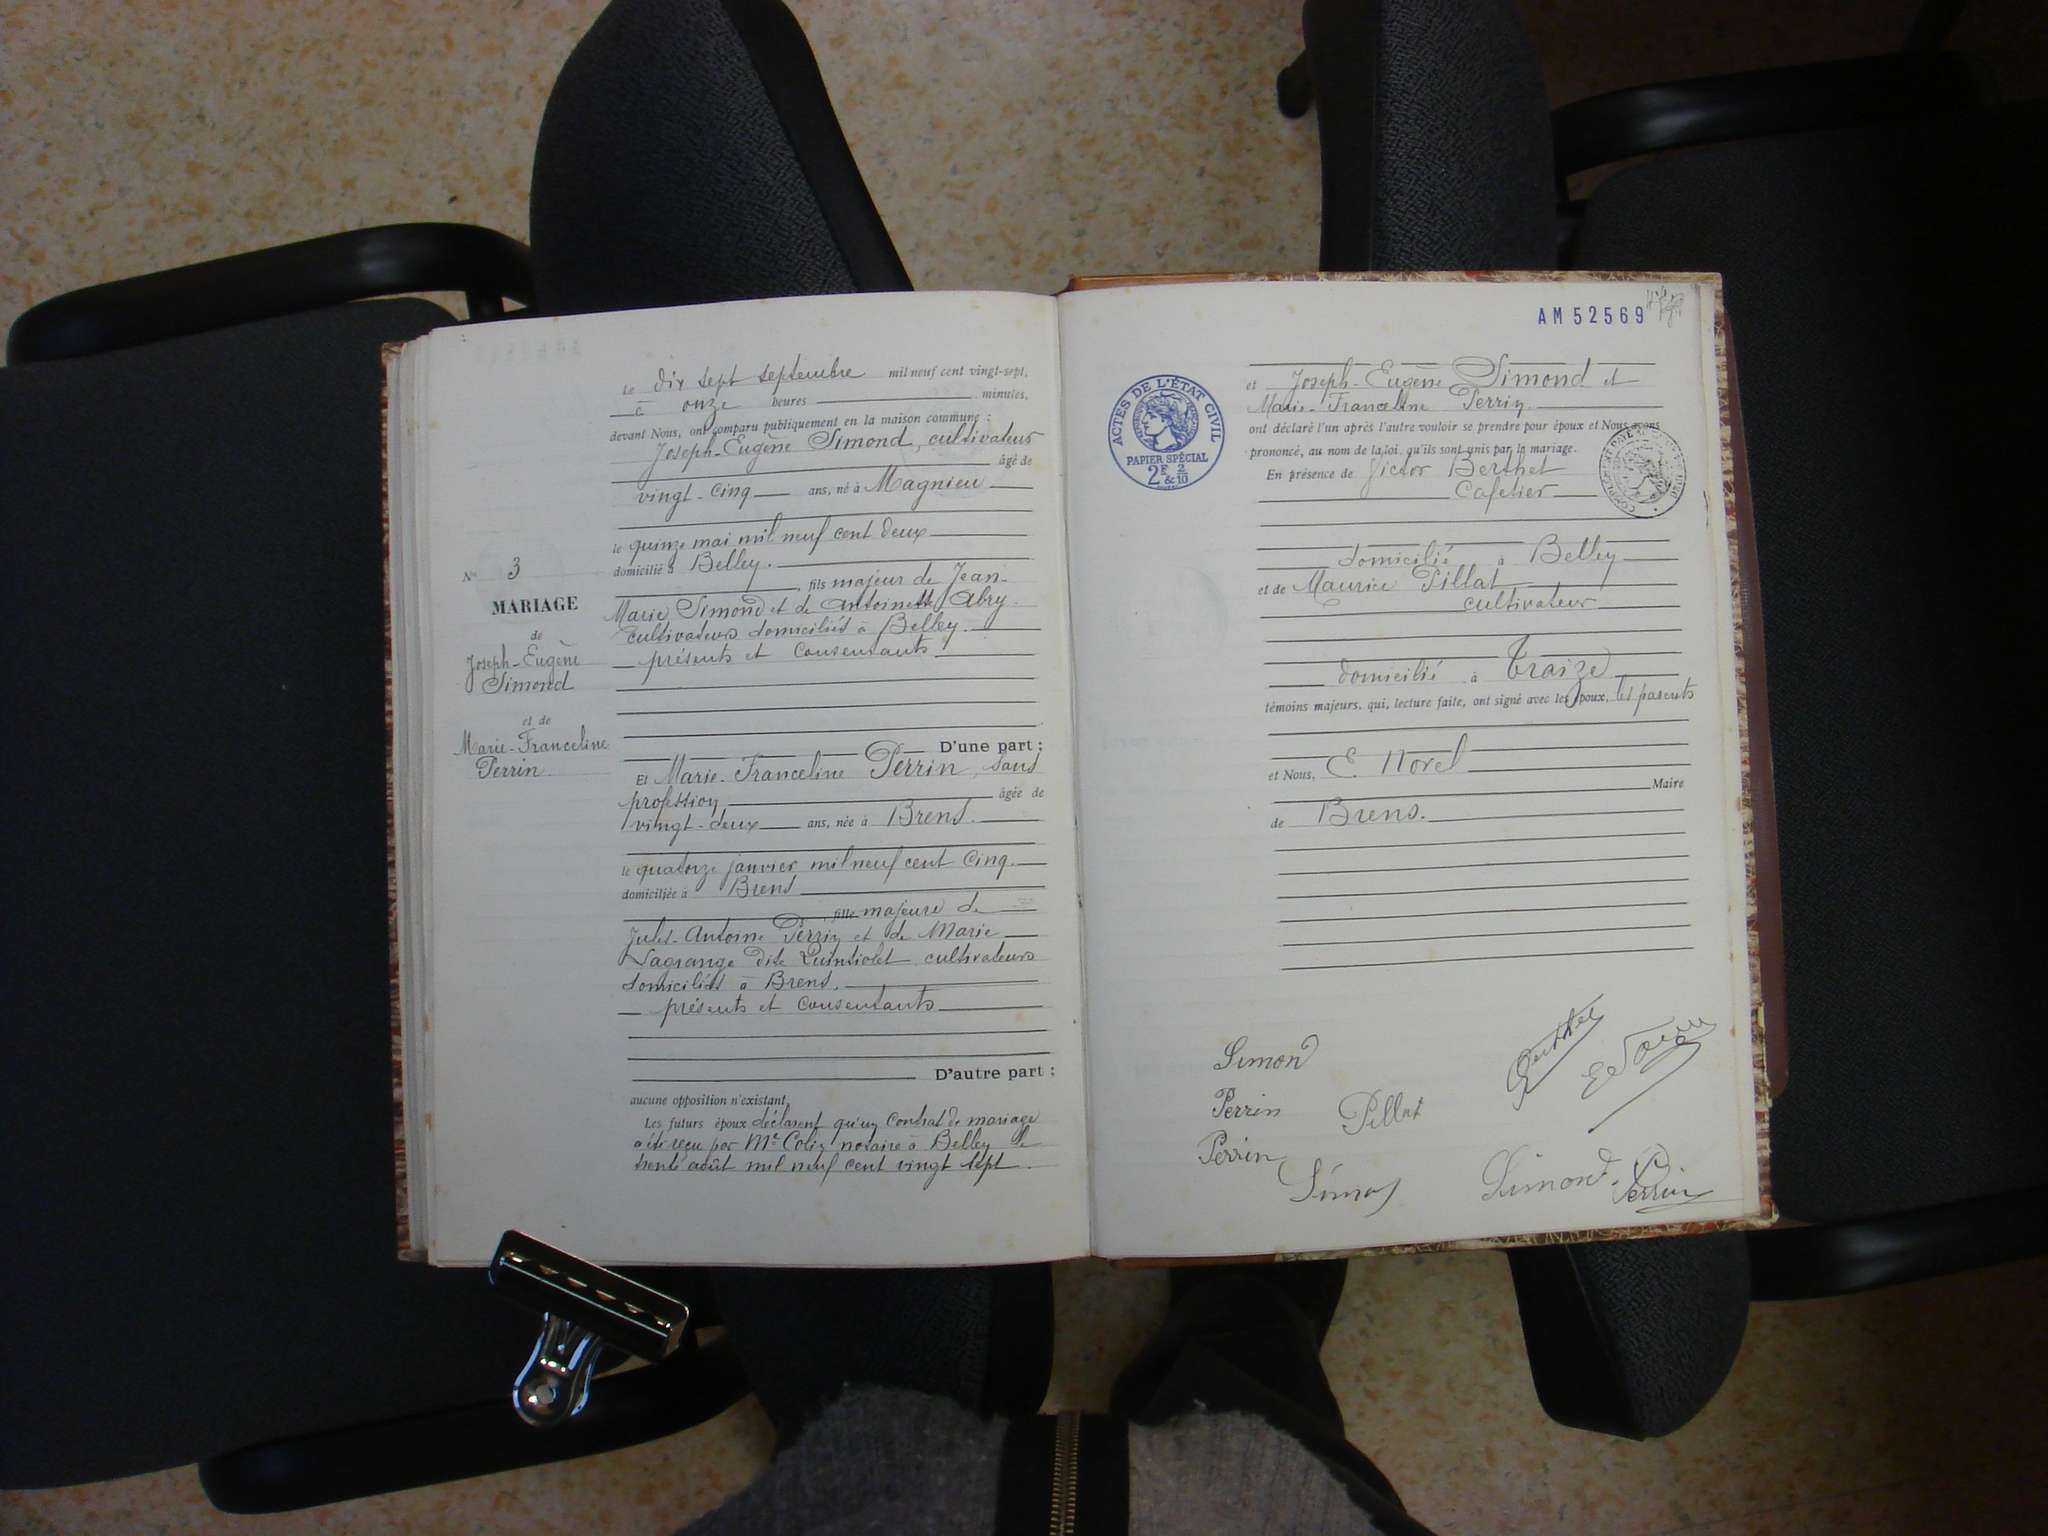 Le dix sept septembre mil neuf cent vingt-sept,
à onze heures minutes,
devant Nous, ont comparu publiquement en la maison commune :
Joseph-Eugène Simond, cultivateur
âgé de
vingt-cinq ans, né à Magnieu
le quinze mai mil neuf cent deux
domicilié à Belley.
fils majeur de Jean-
Marie Simond et de Antoinette Abry.
cultivateurs domiciliés à Belley.
présents et consentants
D'une part ;
Et Marie-Franceline Perrin, sans
profession âgée de
vingt-deux ans, née à Brens.
le quatorze janvier mil neuf cent cinq.
domiciliée à Brens
fille majeure de
Jules-Antoine Perrin et de Marie
Lagrange dite Quintiolet cultivateurs
domiciliés à Brens.
présents et consentants
D'autre part ;
aucune opposition n'existant
Les futurs époux déclarent qu'un contrat de mariage
a été reçu par Me Colin notaire à Belley le
trente août mil neuf cent vingt sept.
No 3
MARIAGE
de
Joseph-Eugène
Simond
et de
Marie-Franceline
Perrin.
AM 52569
ACTES DE L'ÉTAT CIVIL
PAPIER SPÉCIAL
2F & 2/10
et Joseph-Eugène Simond et
Marie-Franceline Perrin.
ont déclaré l'un après l'autre vouloir se prendre pour époux et Nous avons
prononcé, au nom de la loi, qu'ils sont unis par le mariage.
En présence de Victor Berthet
Cafetier
domicilié à Belley
et de Maurice Pillat
cultivateur
domicilié à Traize
témoins majeurs, qui, lecture faite, ont signé avec les époux, les parents
et Nous, E. Morel
Maire
de Brens.
Simond
Perrin
Pillat
Berthet
Perrin
Simond
Simond.
Perrin